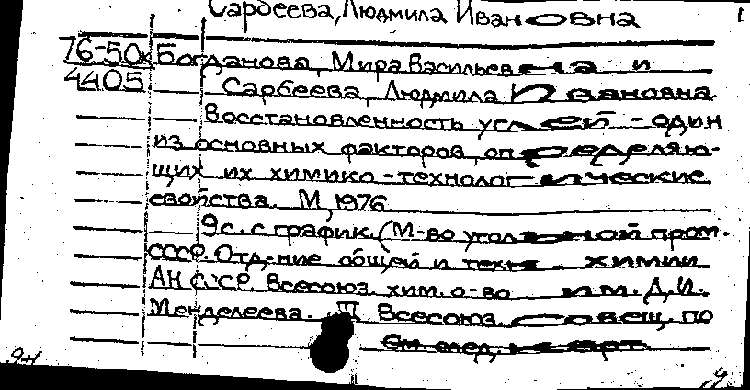 Сарбеева, Людмила Ивановна
76-50к Богданова, Мира Васильевна и
4405 Сарбеева, Людмила Ивановна
Восстановленность углей - один
из основных факторов, определяю-
щих их химико-технологические
свойства. М, 1976
9 с. с график. (М-во угольной пром.
СССР. Отд-ние общей и техн. химии
АН СССР. Всесоюз. хим. о-во им. Д.И.
Менделеева. III Всесоюз. совещ. по
См. след. карт.
9-1 9